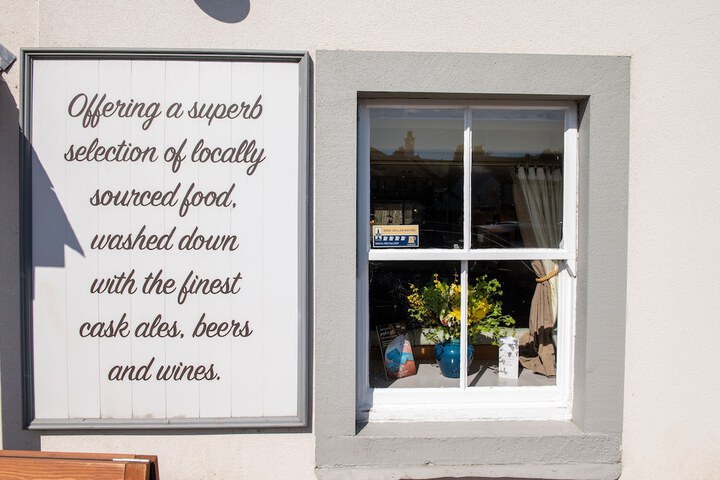 Offering a superb
selection of locally
sourced food,
washed down
with the finest
cask ales, beers
and wines.